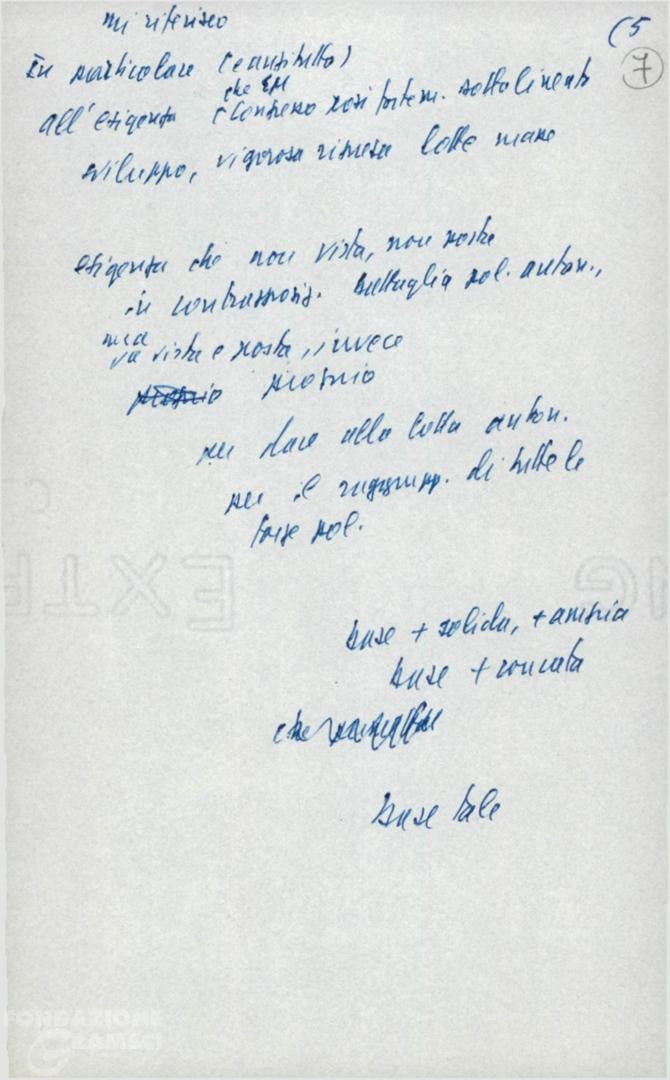 mi riferisco
(5
7
In particolare (e anzitutto)
che EM
all'esigenza (Longo così fortem. sottolineato
sviluppo, vigorosa ripresa lotte masse
esigenza che non vista, non posta
in contrappos. battaglia pol. auton.,
ma
va vista e posta, invece
proprio proprio
per dare alla lotta auton.
per il raggrupp. di tutte le
forze pol.
base + solida, + ampia
base + concreta
che
base tale
EXTR
FONDAZIONE
GRAMSCI